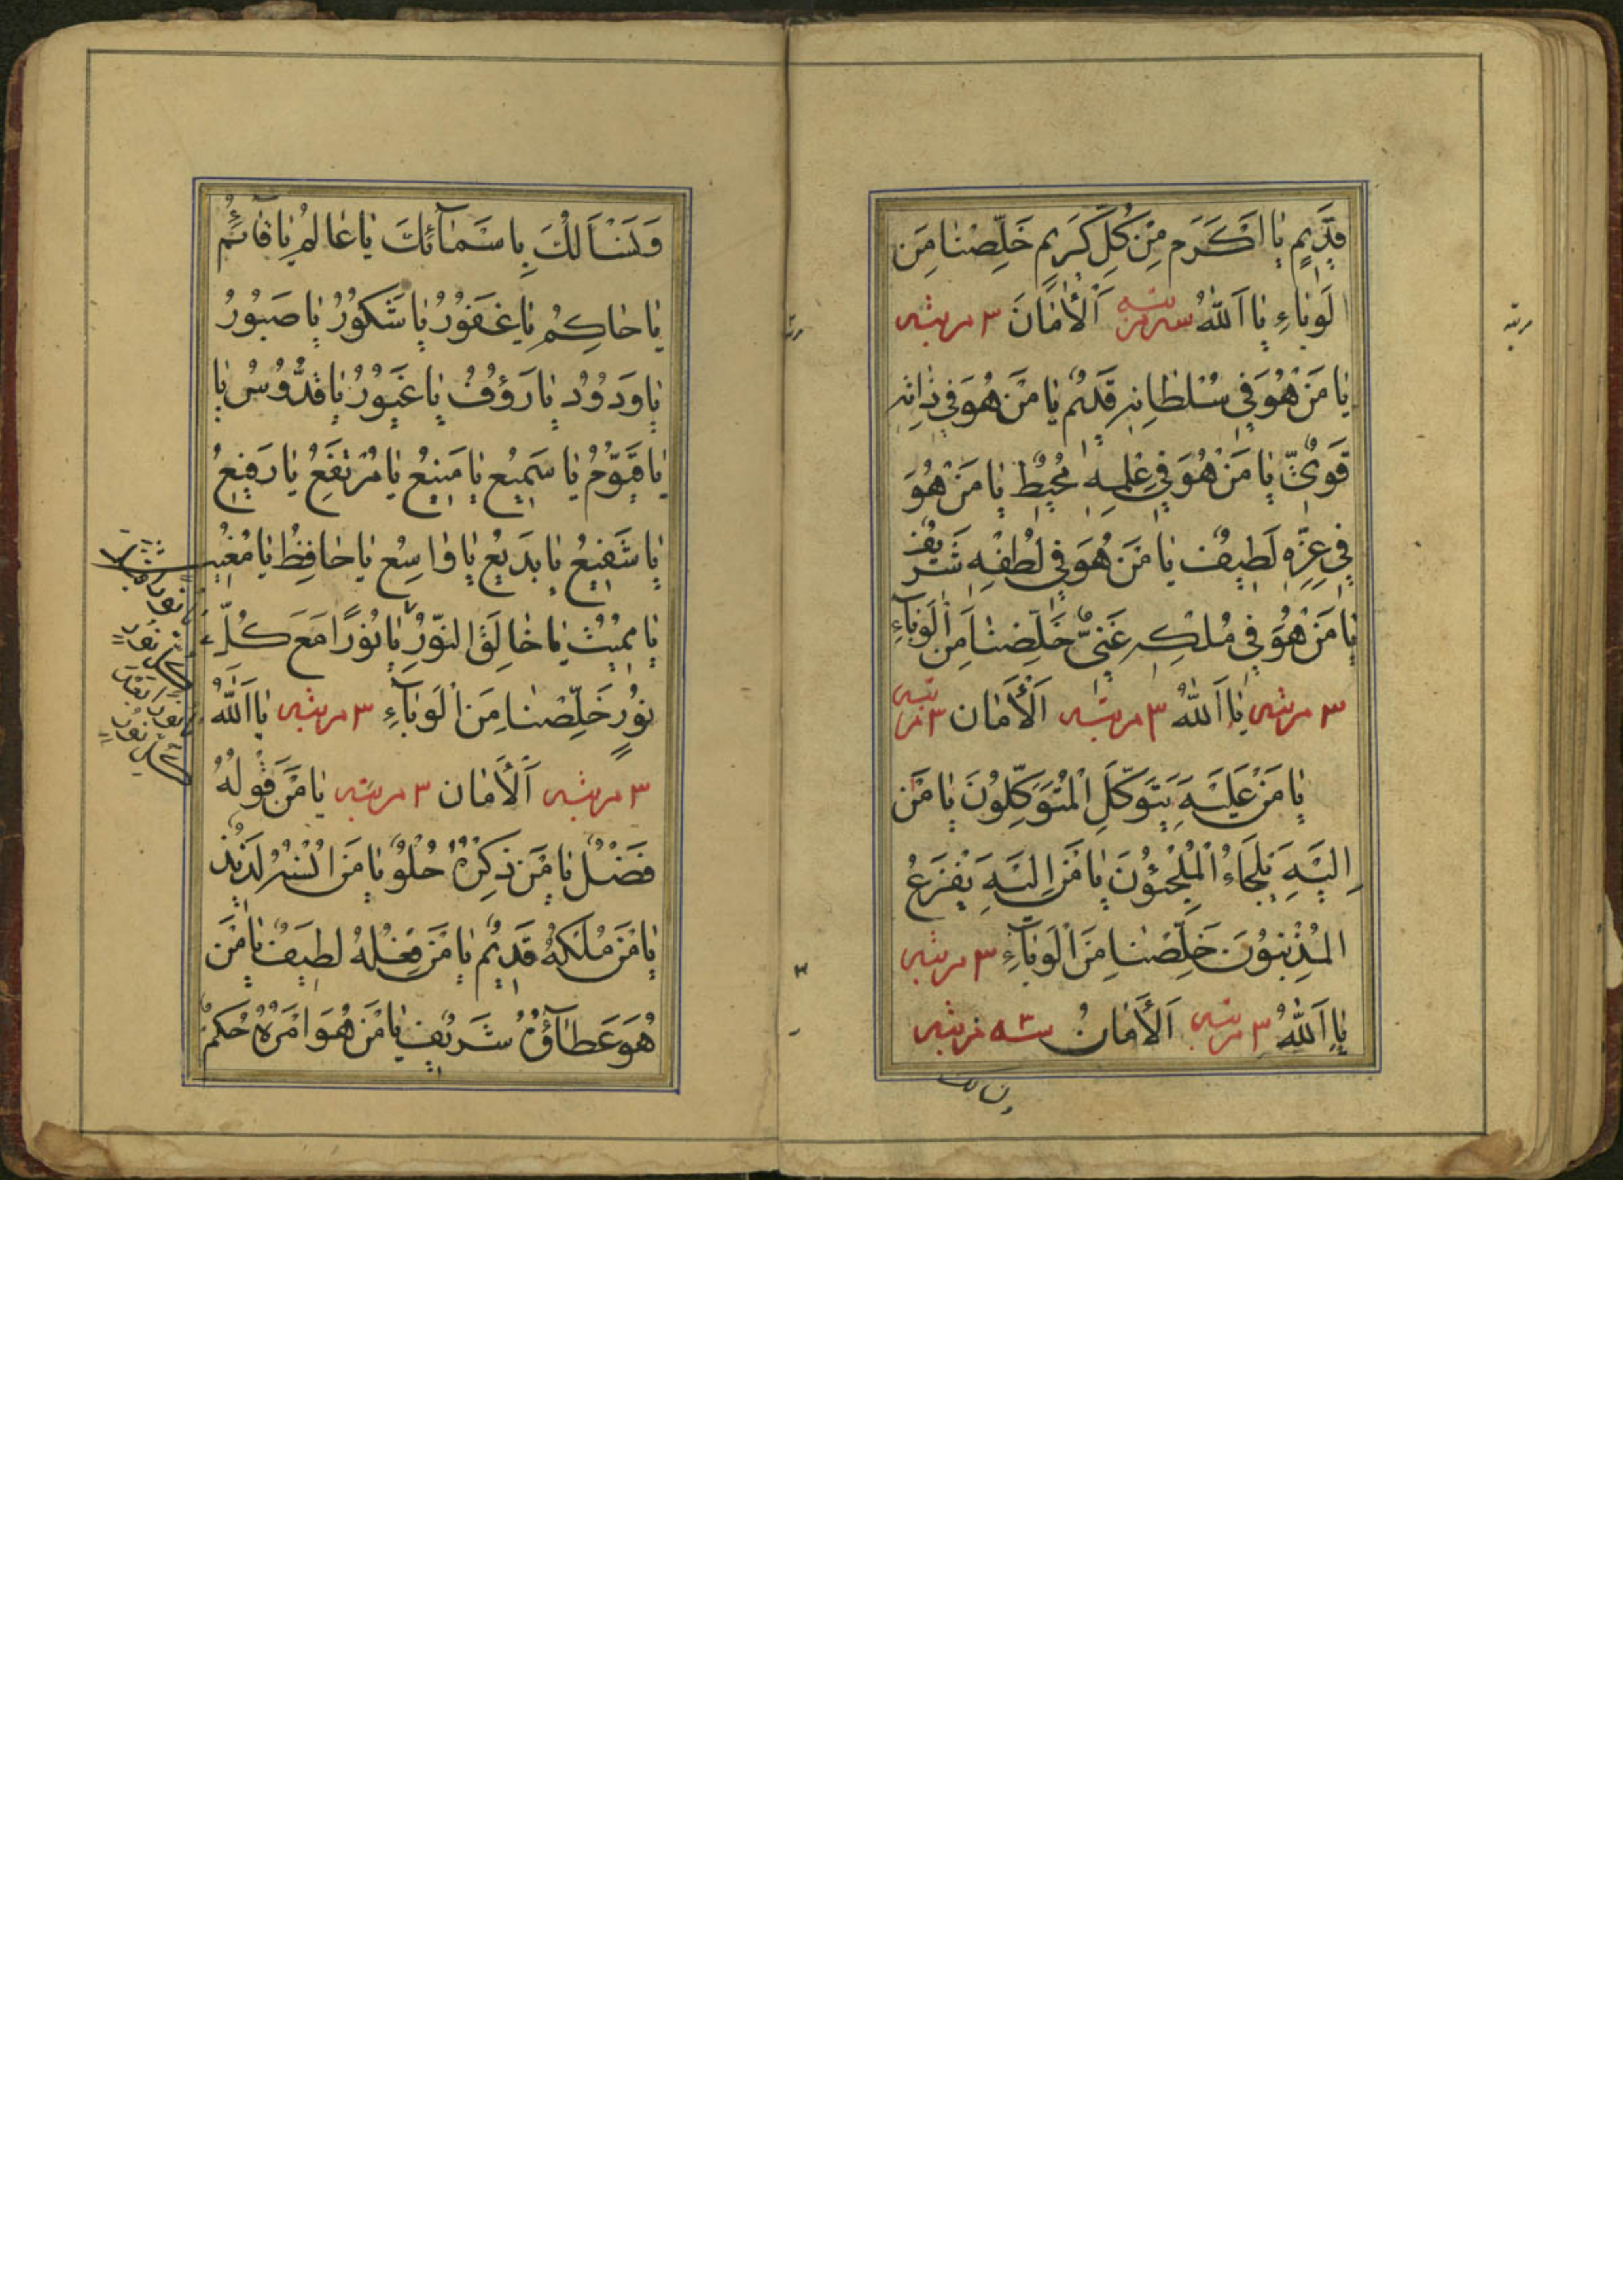 قَدِيمٍ يٰا اَكْرَم مِنْ كُلِّ كَرِيم خَلِّصْنٰا مِنَ
الْوَبٰاءِ يٰا اَللّٰهُ سه مرتبه اَلْأَمٰانَ ٣ مرتبه
يٰا مَنْ هُوَ فِي سُلْطٰانِهِ قَدِيمٌ يٰا مَنْ هُوَ فِي ذٰاتِهِ
قَوِيٌّ يٰا مَنْ هُوَ فِي عِلْمِهِ مُحِيطٌ يٰا مَنْ هُوَ
فِي عِزِّهِ لَطِيفٌ يٰا مَنْ هُوَ فِي لُطْفِهِ شَرِيفٌ
يٰا مَنْ هُوَ فِي مُلْكِهِ غَنِيٌّ خَلِّصْنٰا مِنَ الْوَبٰآءِ
٣ مرتبه يٰا اَللّٰهُ ٣ مرتبه اَلْأَمٰان ٣ مرتبه
يٰا مَنْ عَلَيْهِ يَتَوَكَّلِ الْمُتَوَكِّلُونَ يٰا مَنْ
اِلَيْهِ يَلْجَاءُ الْمُلْجِئُونَ يٰا مَنْ اِلَيْهِ يَفْزَعُ
الْمُذْنِبُونَ خَلِّصْنٰا مِنَ الْوَبٰآءِ ٣ مرتبه
يٰا اَللّٰهُ ٣ مرتبه اَلْأَمٰانُ سه مرتبه
مرتبه
وَنَسْأَلُكَ بِاسْمٰآئِكَ يٰا عٰالِمُ يٰا قٰآئِمُ
يٰا حٰاكِمُ يٰا غَفُورُ يٰا شَكُورُ يٰا صَبُورُ
يٰا وَدُودُ يٰا رَؤُفُ يٰا غَيُورُ يٰا قُدُّوسُ يٰا
يٰا قَيُّومُ يٰا سَمِيعُ يٰا مَنِيعُ يٰا مُرْتَفَعُ يٰا رَفِيعُ
يٰا شَفِيعُ يٰا بَدِيعُ يٰا وٰاسِعُ يٰا حٰافِظُ يٰا مُغِيثُ
يٰا مُمِيتُ يٰا خٰالِقَ النُّورُ يٰا نُورًا مَعَ كُلِّ
نُورٍ خَلِّصْنٰا مِنَ الْوَبٰآءِ ٣ مرتبه يٰا اَللّٰهُ
٣ مرتبه اَلْأَمٰان ٣ مرتبه يٰا مَنْ قَوْلُهُ
فَضْلٌ يٰا مَنْ ذِكْرُهُ حُلْوٌ يٰا مَنْ اُنْسُهُ لَذِيذٌ
يٰا مَنْ مُلْكُهُ قَدِيمٌ يٰا مَنْ فِعْلُهُ لَطِيفٌ يٰا مَنْ
هُوَ عَطٰآؤُهُ شَرِيفٌ يٰا مَنْ هُوَ اَمْرُهُ حُكْمٌ